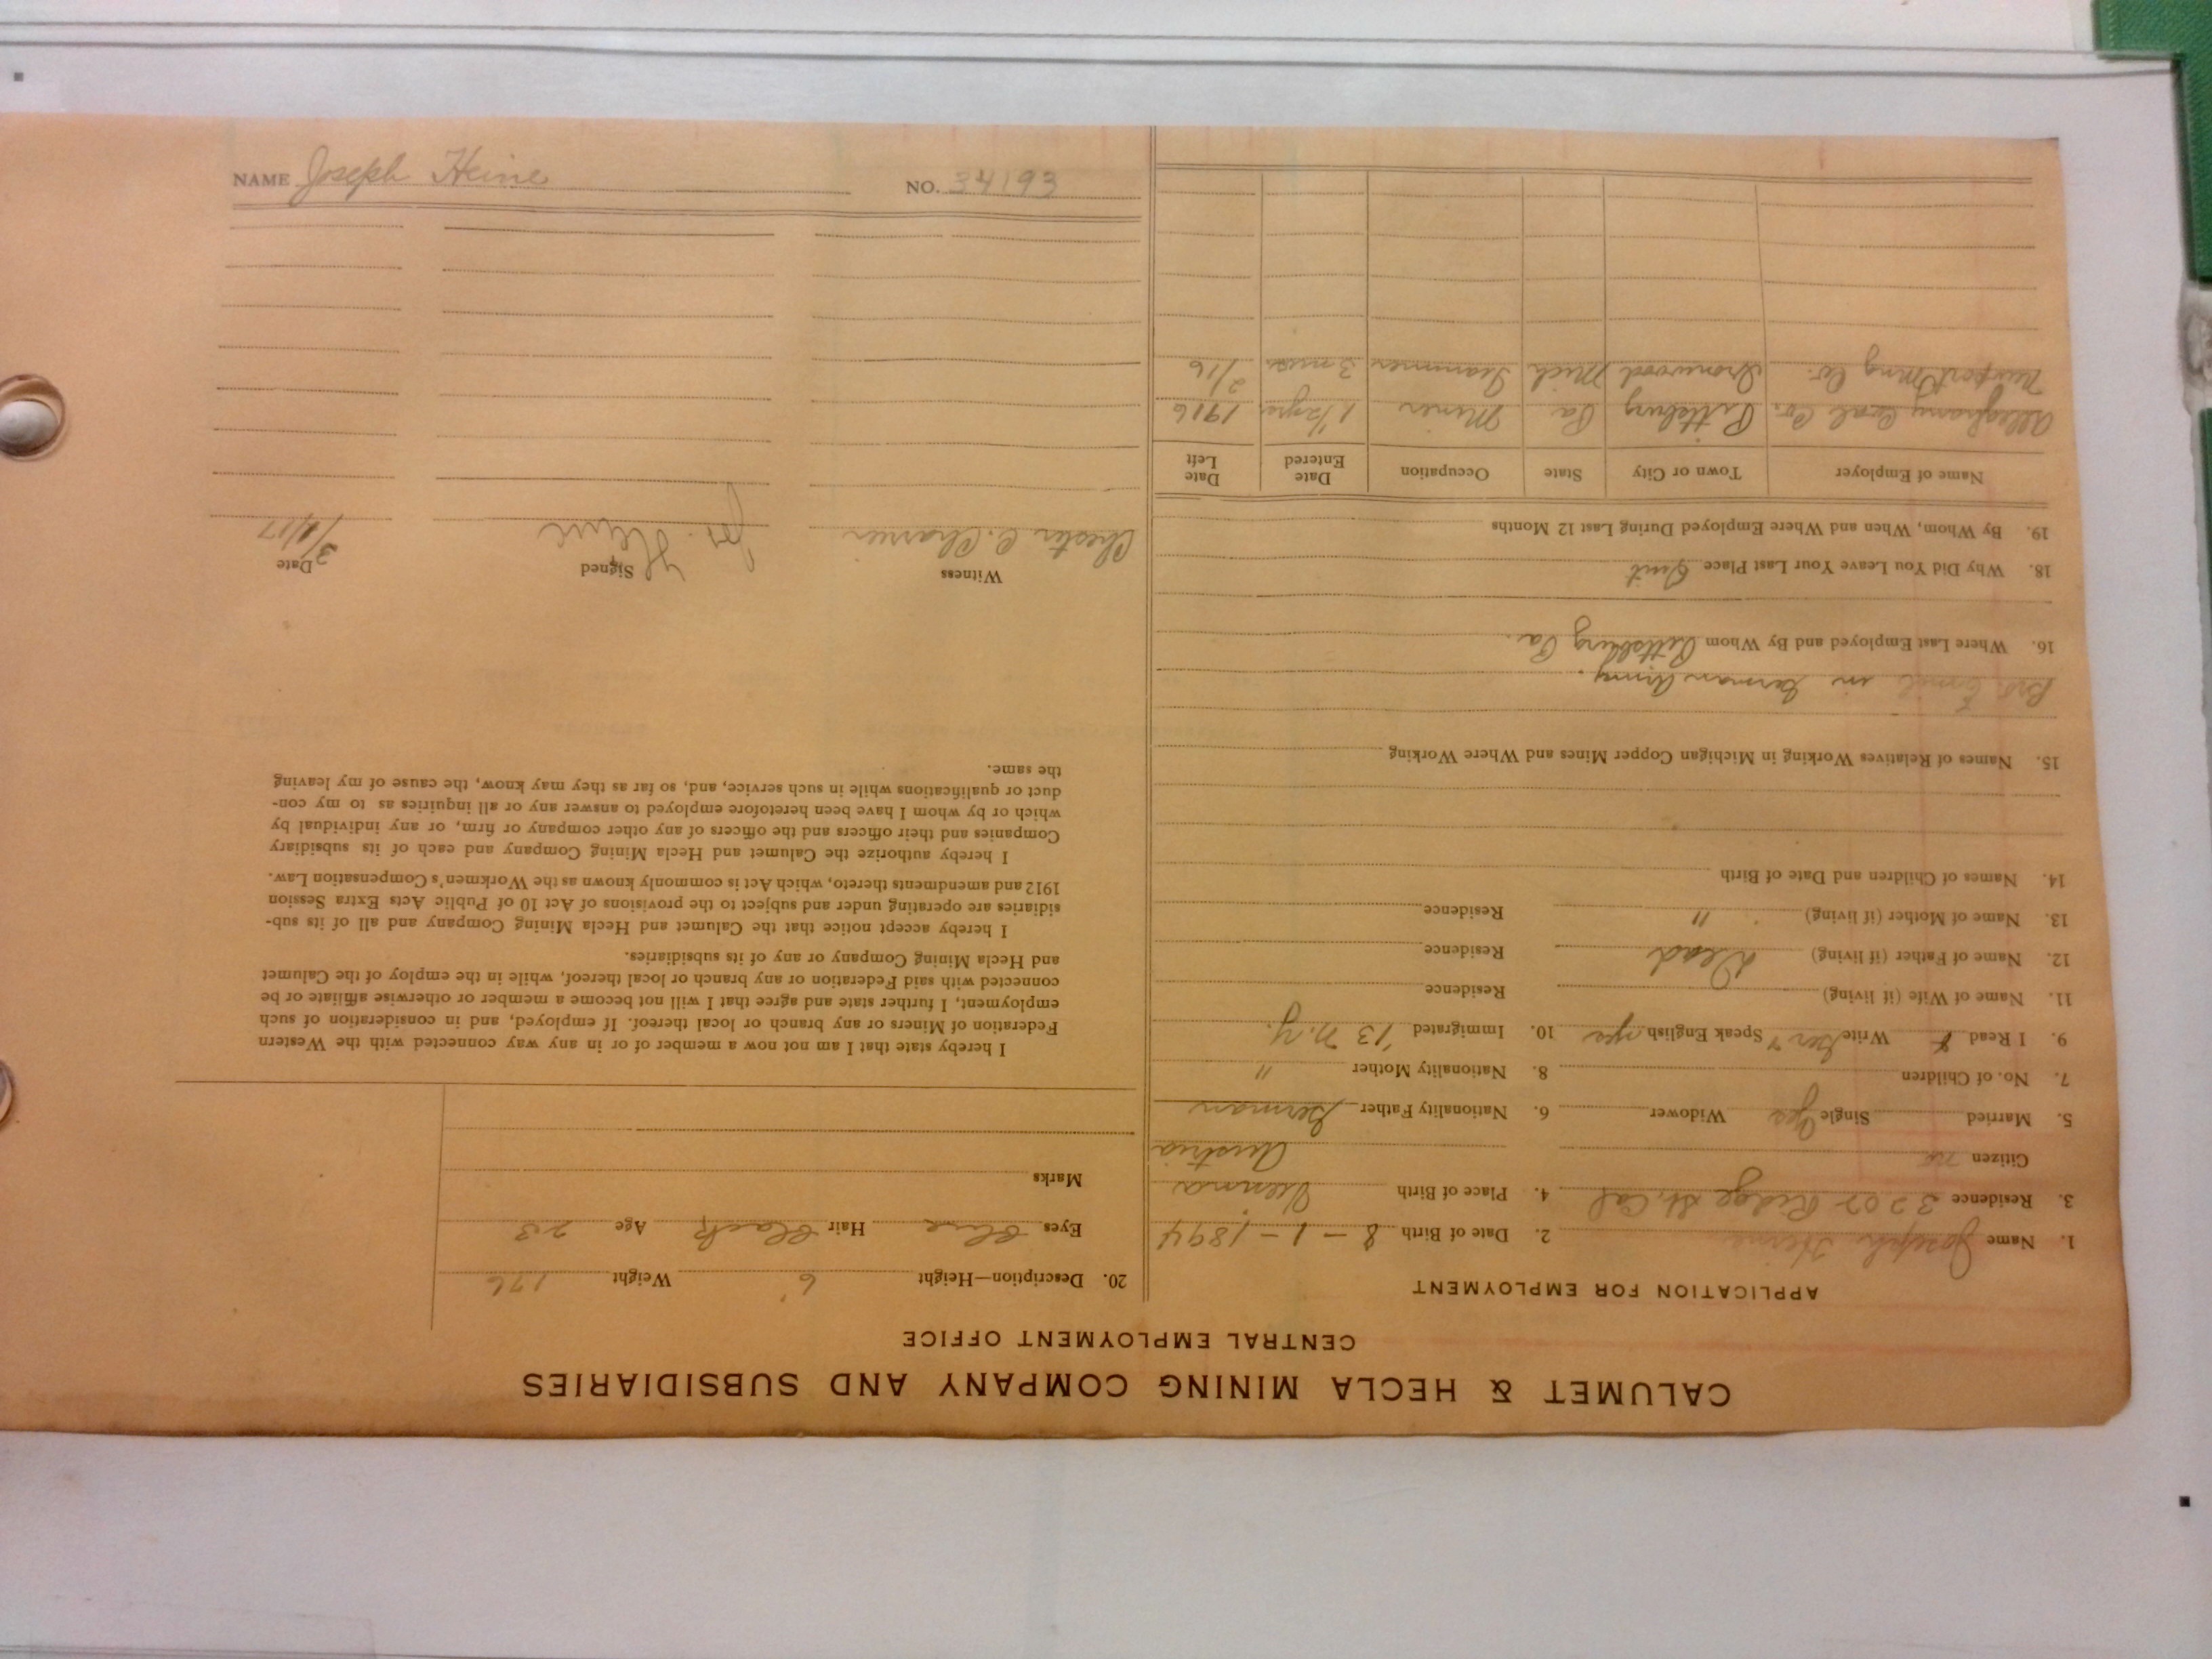 CALUMET & HECLA MINING COMPANY AND SUBSIDIARIES
CENTRAL EMPLOYMENT OFFICE
APPLICATION FOR EMPLOYMENT
1. Name Joseph Heine 2. Date of Birth 8-1-1894
3. Residence 3202 Ridge St. Cal 4. Place of Birth Vienna
Citizen no Austria
5. Married Single Yes Widower 6. Nationality Father German
7. No. of Children 8. Nationality Mother "
9. I Read & Write Ger Speak English yes 10. Immigrated '13 N.Y.
11. Name of Wife (if living) Residence
12. Name of Father (if living) Dead Residence
13. Name of Mother (if living) " Residence
14. Names of Children and Date of Birth
15. Names of Relatives Working in Michigan Copper Mines and Where Working
Bro. in German Army.
16. Where Last Employed and By Whom Pittsburg Pa.
18. Why Did You Leave Your Last Place Quit
19. By Whom, When and Where Employed During Last 12 Months
Name of Employer Town or City State Occupation Date Entered Date Left
Alleghany Coal Co. Pittsburg Pa Miner 1 1/2 yrs 1916
Newport Mng Co. Ironwood Mich Trammer 3 mos 2/16
20. Description—Height 6' Weight 176
Eyes blue Hair black Age 23
Marks
I hereby state that I am not now a member of or in any way connected with the Western
Federation of Miners or any branch or local thereof. If employed, and in consideration of such
employment, I further state and agree that I will not become a member or otherwise affiliate or be
connected with said Federation or any branch or local thereof, while in the employ of the Calumet
and Hecla Mining Company or any of its subsidiaries.
I hereby accept notice that the Calumet and Hecla Mining Company and all of its sub-
sidiaries are operating under and subject to the provisions of Act 10 of Public Acts Extra Session
1912 and amendments thereto, which Act is commonly known as the Workmen's Compensation Law.
I hereby authorize the Calumet and Hecla Mining Company and each of its subsidiary
Companies and their officers and the officers of any other company or firm, or any individual by
which or by whom I have been heretofore employed to answer any or all inquiries as to my con-
duct or qualifications while in such service, and, so far as they may know, the cause of my leaving
the same.
Witness Signed Date
Chester C. Jos. Heine
NAME Joseph Heine NO. 34193